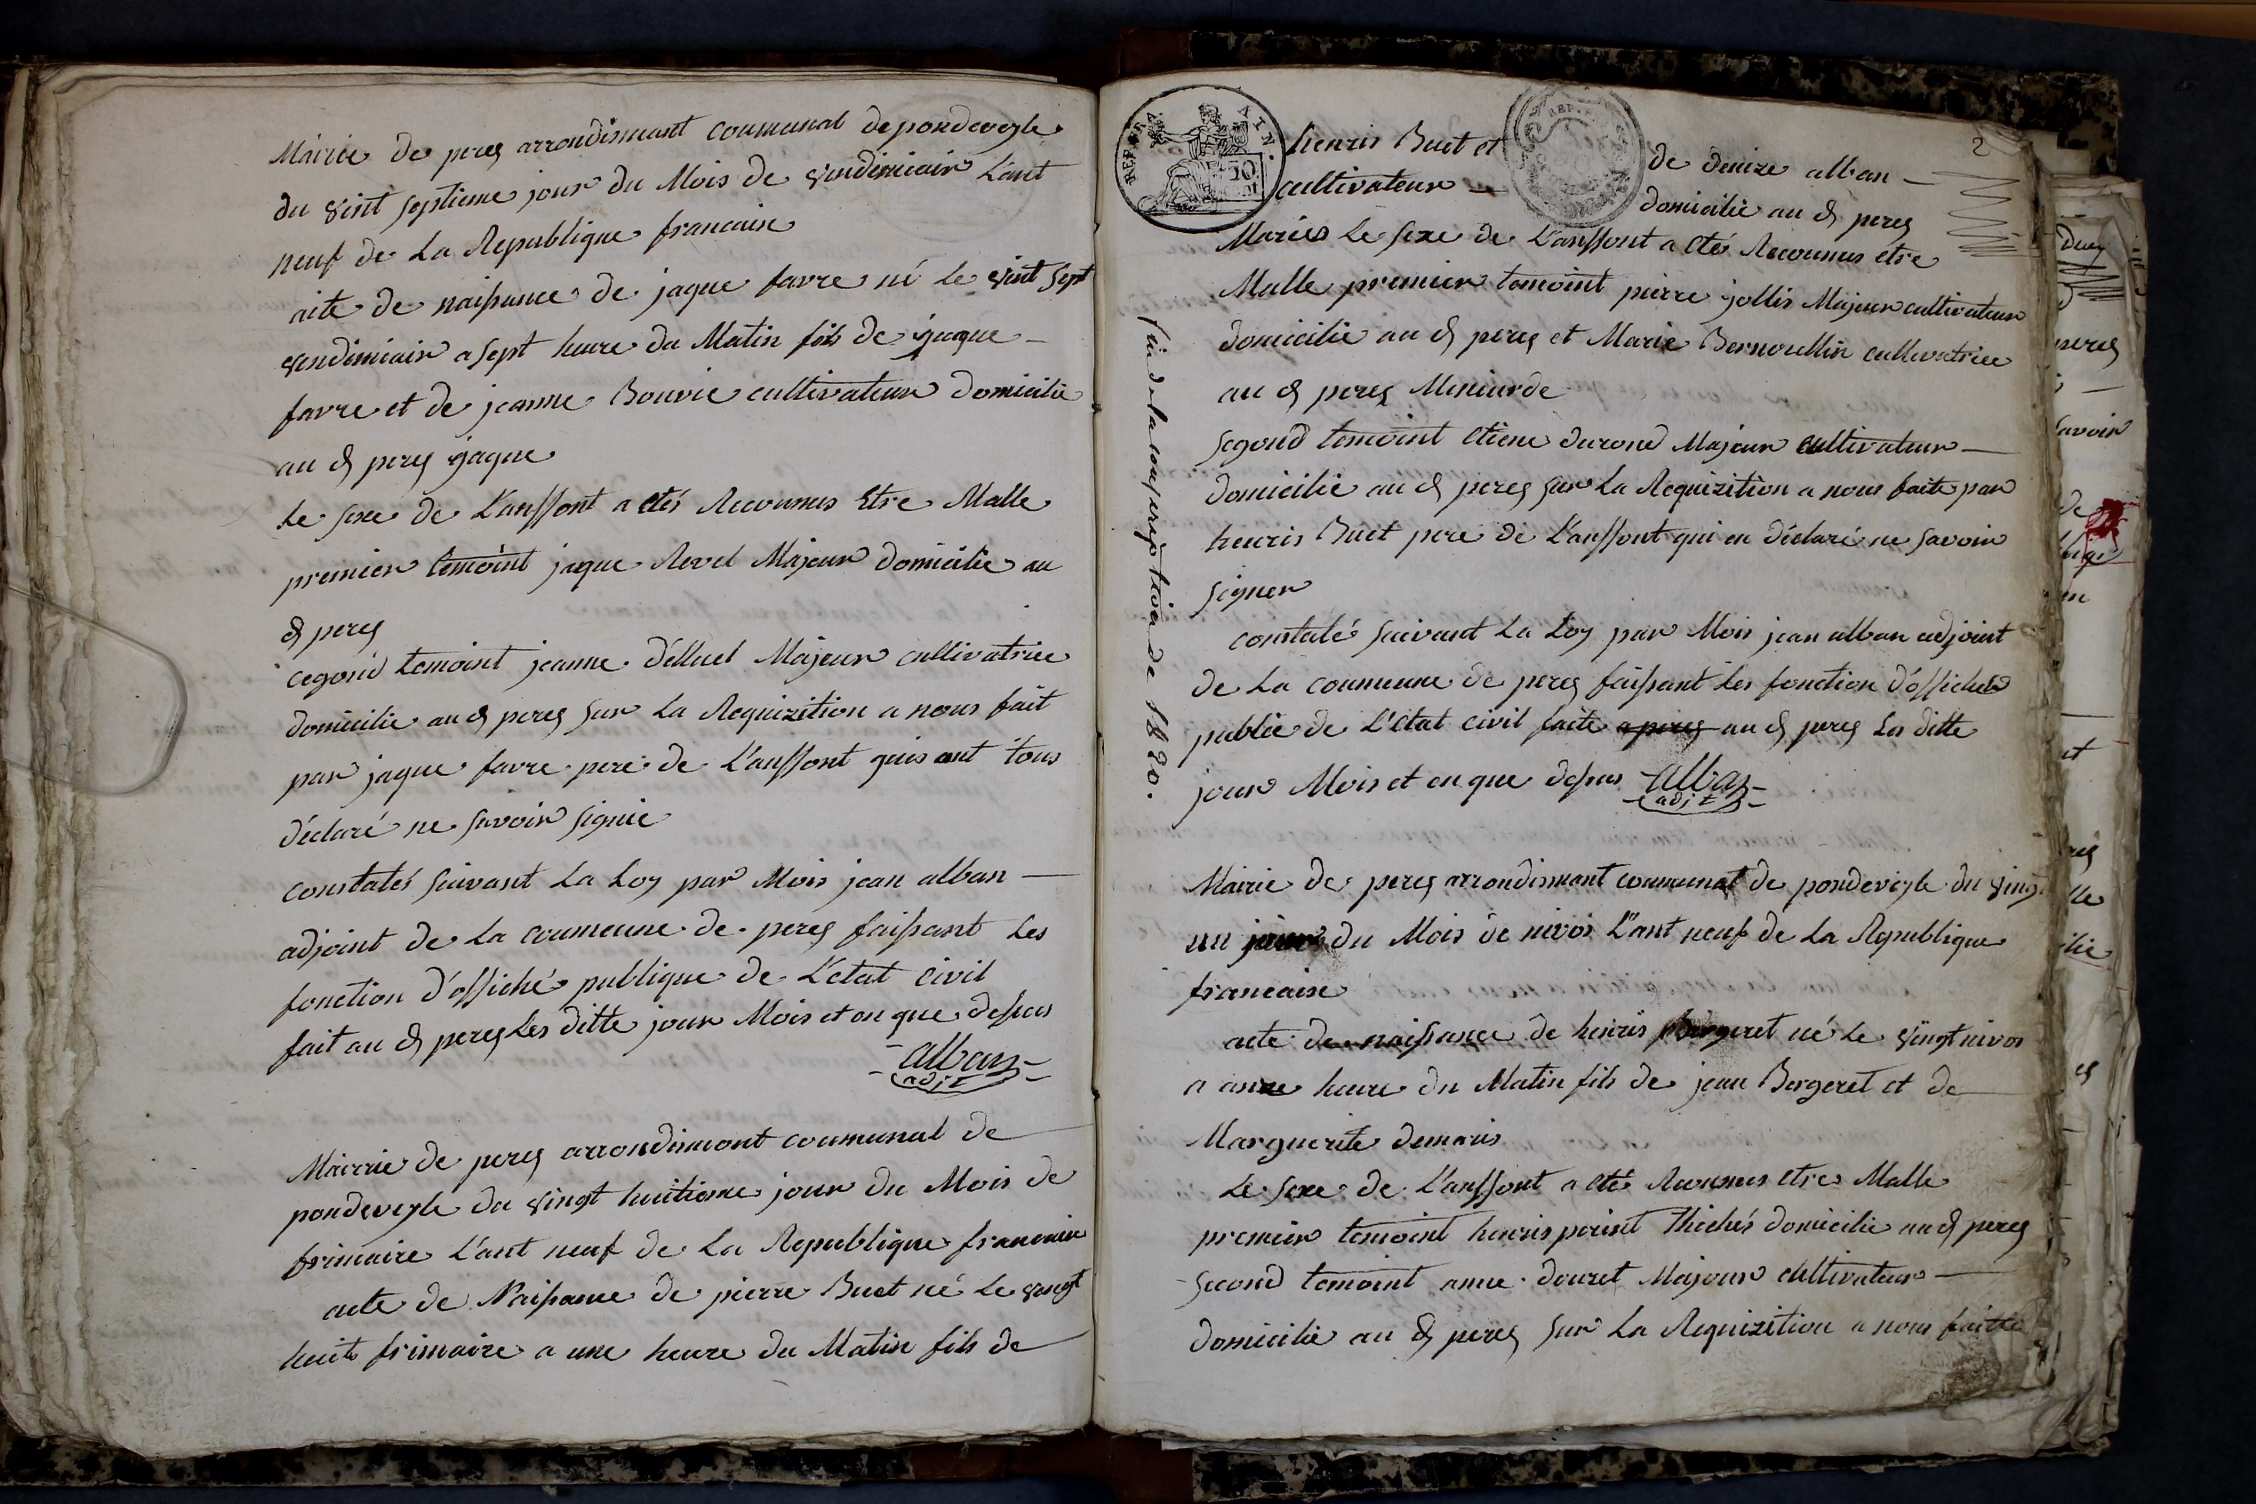 Mairie de perez arrondismant coumunal de pondeveyle
du vint septieme jour du Mois de vendimiair L'ant
neuf de La Republique francaise
aite de naissance de jaque favre né le vint sept
vendimiair a sept heure du Matin fils de jaque
favre et de jeanne Bouvie cultivateur domicilié
au d perez jaque
Le sexe de L'anffont a étés Recounus Etre Malle
premier temoint jaque Revel Majeur domicilie au
d perez
cegond temoint jeanne délluel Majeur cultivatrice
domicilie au d perez sur La Requizition a nous fait
par jaque favre pere de L'anffont quis ant tous
déclaré ne savoir signie
constatés suivant La Loy par Mois jean alban
adjoint de La coumeune de perez faissant Les
fonction d'offiché publique de L'état civil
fait au d perez Les ditte jour Mois et an que dessus
alban
adjt
Mairrie de perez arrondismont coumunal de
pondeveyle du vingt huitieme jour du Mois de
frimaire L'ant neuf de La Republique francaise
acte de Naissance de pierre Buet né Le vingt
huit frimaire a une heure du Matin fils de
2
REP. FRA.
AIN.
50
henris Buet et de denize alban
cultivateur domicilié au d perez
Mariés Le sexe de L'anffont a étés Recounus etre
Malle premier temoint pierre jollis Majeur cultivateur
domicilie au d perez et Marie Bernoullin cultivatrice
au d perez Meniarde
segond temoint etiene durond Majeur cultivateur
domicilie au d perez sur La Requizition a nous faite par
henris Buet pere de L'anffont qui en déclaré ne savoir
signer
constaté suivant La Loy par Mois jean alban adjoint
de La coumeune de perez faissant Les fonction d'offiche
publie de L'état civil faite a perez au d perez Les ditte
jour Mois et en que dessus
alban
adjt
fin de la conscription de 1820.
Mairie de perez arrondismant coumunal de pondeveyle du vingt
un jour du Mois de nivos L'ant neuf de La Republique
francaise
acte de naissance de henris Bergeret né Le vingt nivos
a onze heure du Matin fils de jean Bergeret et de
Marguerite demaris
Le sexe de L'anffont a étés Recounus etre Malle
premier temoint henris perint domicilie au d perez
second temoint anne douret Majour cultivateur
domicilie au d perez sur La Requizition a nous faitte